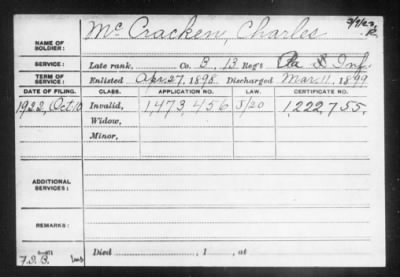 NAME OF SOLDIER: Mc Cracken, Charles
SERVICE: Late rank, Co. B, 13 Reg't Pa Inf.
TERM OF SERVICE: Enlisted Apr. 27, 1898 Discharged Mar. 11, 1899
DATE OF FILING. CLASS. APPLICATION NO. LAW. CERTIFICATE NO.
1922, Oct. 10 Invalid, 1,473,456 5/20 1,222,755.
Widow,
Minor,
ADDITIONAL SERVICES:
REMARKS:
Died , 1 , at